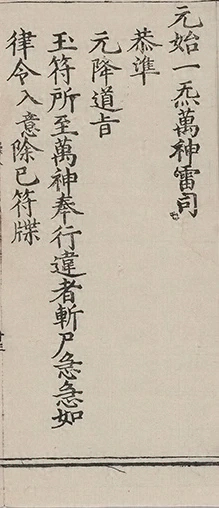 元始一炁萬神雷司
恭準
元降道旨
玉符所至萬神奉行違者斬尸急急如
律令入意除已符牒